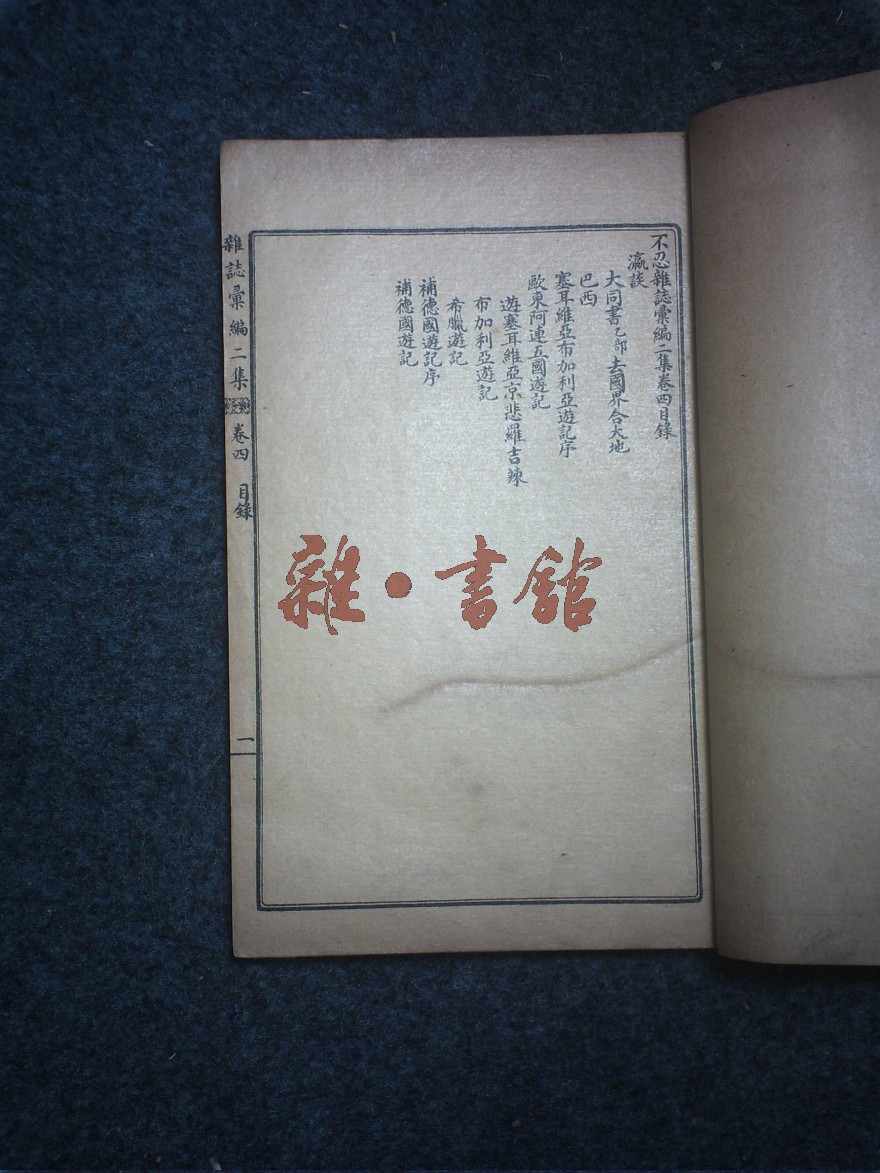 不忍雜誌彙編二集卷四目錄
瀛談
大同書乙部去國界合大地
巴西
塞耳維亞布加利亞遊記序
歐東阿連五國遊記
遊塞耳維亞京悲羅吉辣
布加利亞遊記
希臘遊記
補德國遊記序
補德國遊記
雜誌彙編二集 卷四 目錄 一
雜·書館